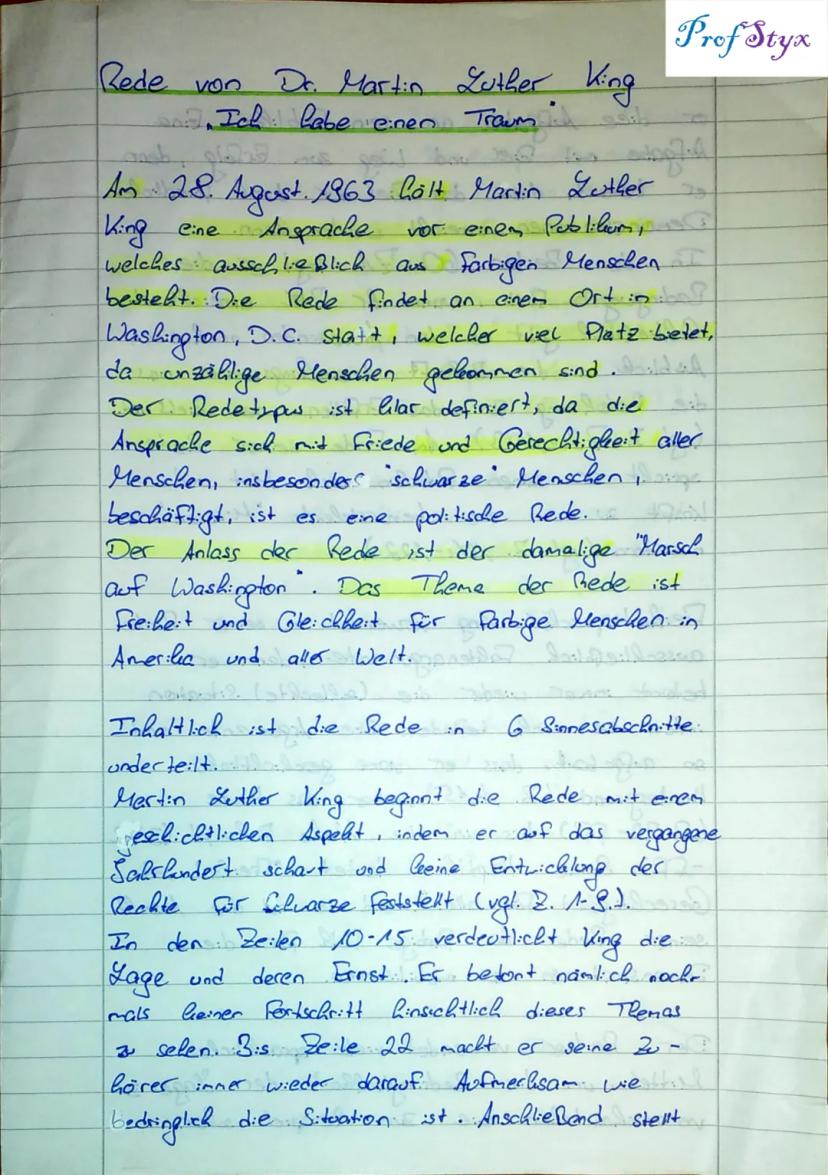 Prof Styx
Rede von Dr. Martin Luther King
"Ich habe einen Traum"
Am 28. August. 1963 hält Martin Luther
King eine Ansprache vor einem Publikum,
welches ausschließlich aus farbigen Menschen
besteht. Die Rede findet an einem Ort in
Washington, D.C. statt, welcher viel Platz bietet,
da unzählige Menschen gekommen sind.
Der Redetypus ist klar definiert, da die
Ansprache sich mit Friede und Gerechtigkeit aller
Menschen, insbesonders "schwarze" Menschen,
beschäftigt, ist es eine politische Rede.
Der Anlass der Rede ist der damalige "Marsch
auf Washington". Das Thema der Rede ist
Freiheit und Gleichheit für farbige Menschen in
Amerika und aller Welt.
Inhaltlich ist die Rede in 6 Sinnesabschnitte
underteilt.
Martin Luther King beginnt die Rede mit einem
geschichtlichen Aspekt, indem er auf das vergangene
Jahrhundert schaut und keine Entwicklung der
Rechte für Schwarze feststellt (vgl. Z. 1-9.).
In den Zeilen 10-15 verdeutlicht King die
Lage und deren Ernst. Er betont nämlich noch-
mals keinen Fortschritt hinsichtlich dieses Themas
zu sehen. Bis Zeile 22 macht er seine Zu-
hörer immer wieder darauf Aufmerksam wie
bedringlich die Situation ist. Anschließend stellt